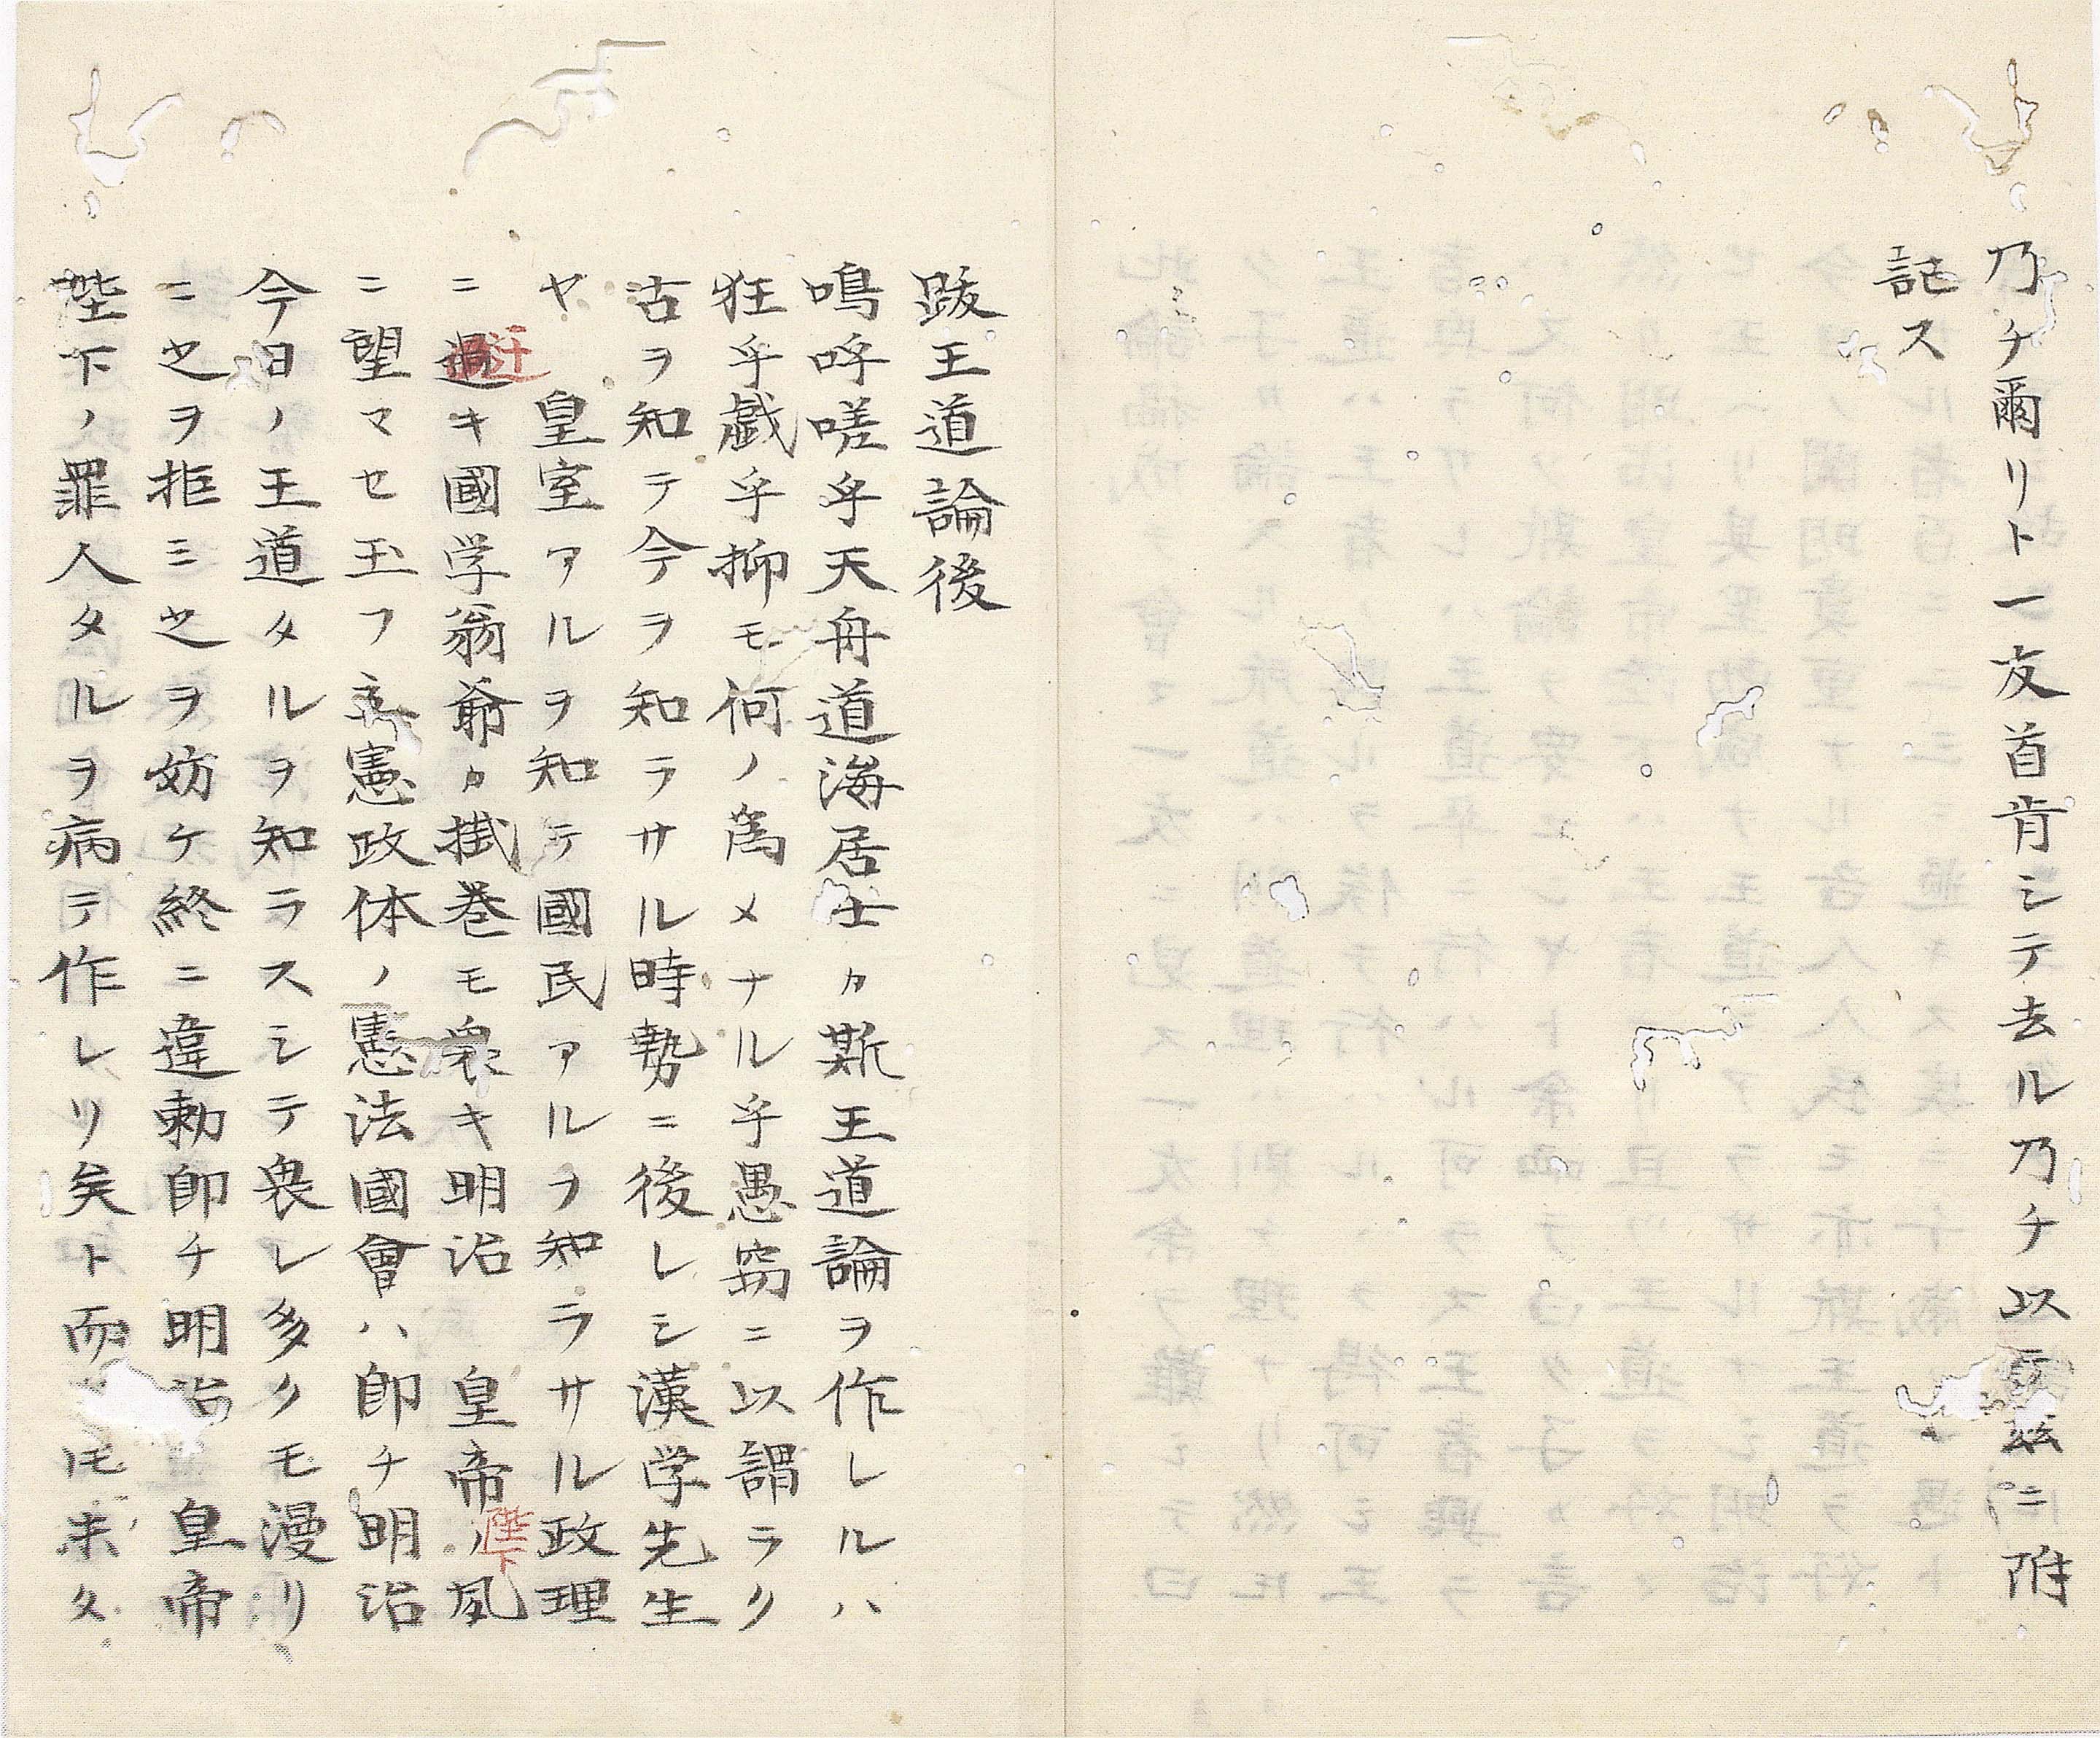 乃チ爾リト一友首肯シテ去ル乃チ以テ茲ニ附
記ス
跋王道論後
嗚呼嗟乎天舟道海居士カ斯王道論ヲ作レルハ
狂乎戯乎抑モ何ノ為メナル乎愚窃ニ以謂ラク
古ヲ知テ今ヲ知ラサル時勢ニ後レシ漢学先生
ヤ 皇室アルヲ知テ國民アルヲ知ラサル政理
ニ迂キ國学翁爺カ掛巻モ畏キ明治 皇帝陛下ノ夙
ニ望マセ玉フ立憲政体ノ憲法國會ハ即チ明治
今日ノ王道タルヲ知ラスシテ畏レ多クモ漫リ
ニ之ヲ拒ミ之ヲ妨ケ終ニ違勅即チ明治 皇帝
陛下ノ罪人タルヲ病テ作レリ矣ト而 㪽未タ